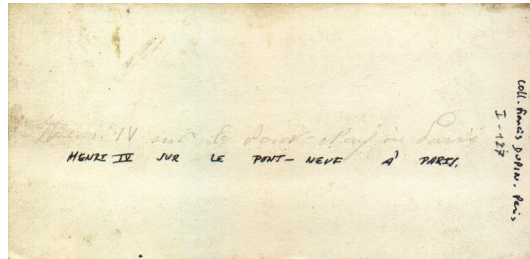 Henri IV sur le Pont-Neuf à Paris
HENRI IV SUR LE PONT-NEUF À PARIS.
Coll. Francis DUPIN. Paris
I-127